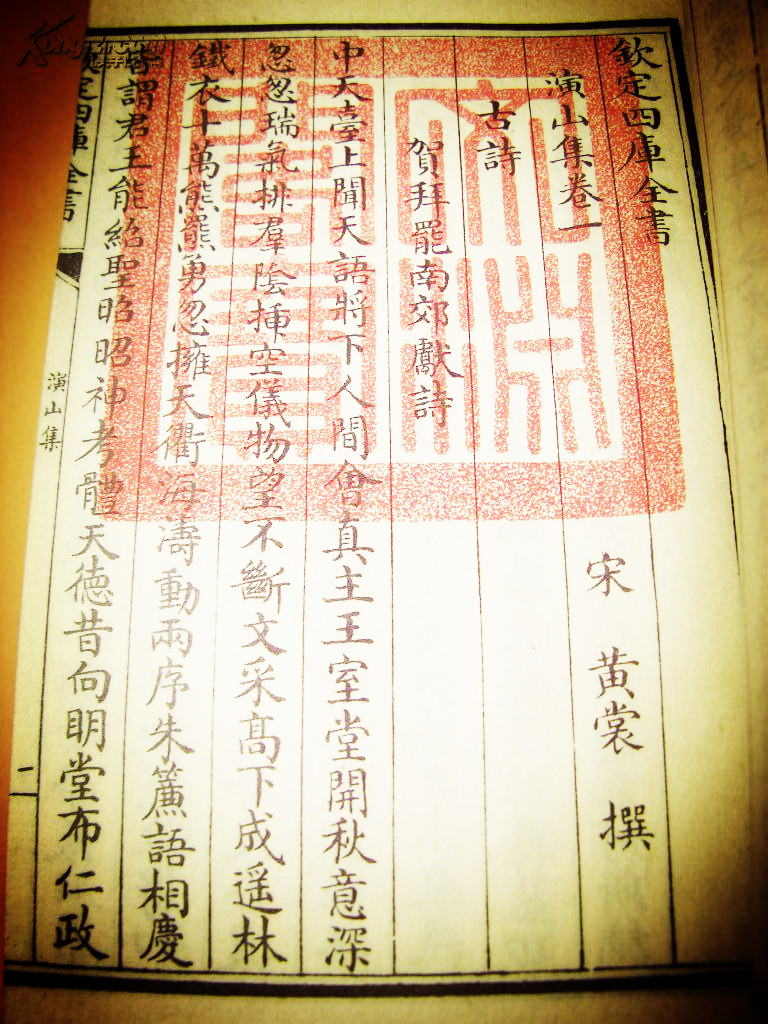 欽定四庫全書
演山集卷一
宋 黄裳 撰
古詩
賀拜罷南郊獻詩
中天臺上聞天語將下人間會真主王室堂開秋意深
忽忽瑞氣排羣陰揷空儀物望不斷文采髙下成遥林
鐵衣十萬熊羆勇忽擁天衢海濤動兩序朱簾語相慶
皆謂君王能紹聖昭昭神考體天德昔向明堂布仁政
欽定四庫全書
演山集
二